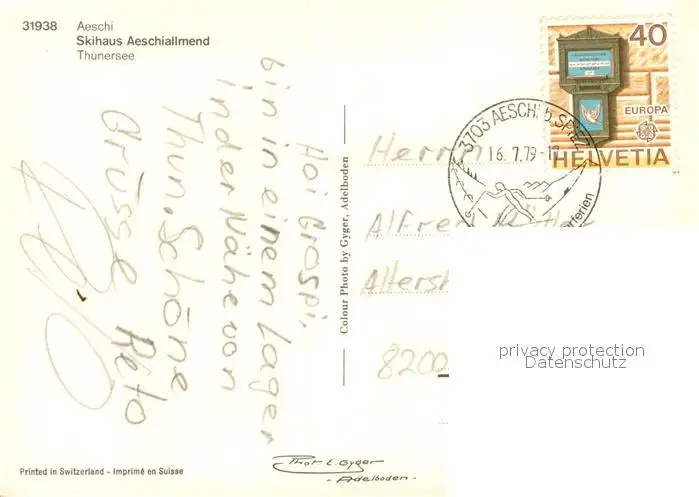 31938 Aeschi
Skihaus Aeschiallmend
Thunersee
Hoi Grospi,
bin in einem Lager
in der Nähe von
Thun. Schöne
Grüsse Reto
Colour Photo by Gyger, Adelboden
40
EUROPA
HELVETIA
3703 AESCHI b. SPIEZ
16.7.79-17
Herrn
Alfred
Alters
8200
privacy protection
Datenschutz
Printed in Switzerland - Imprimé en Suisse
Phot E. Gyger
- Adelboden -